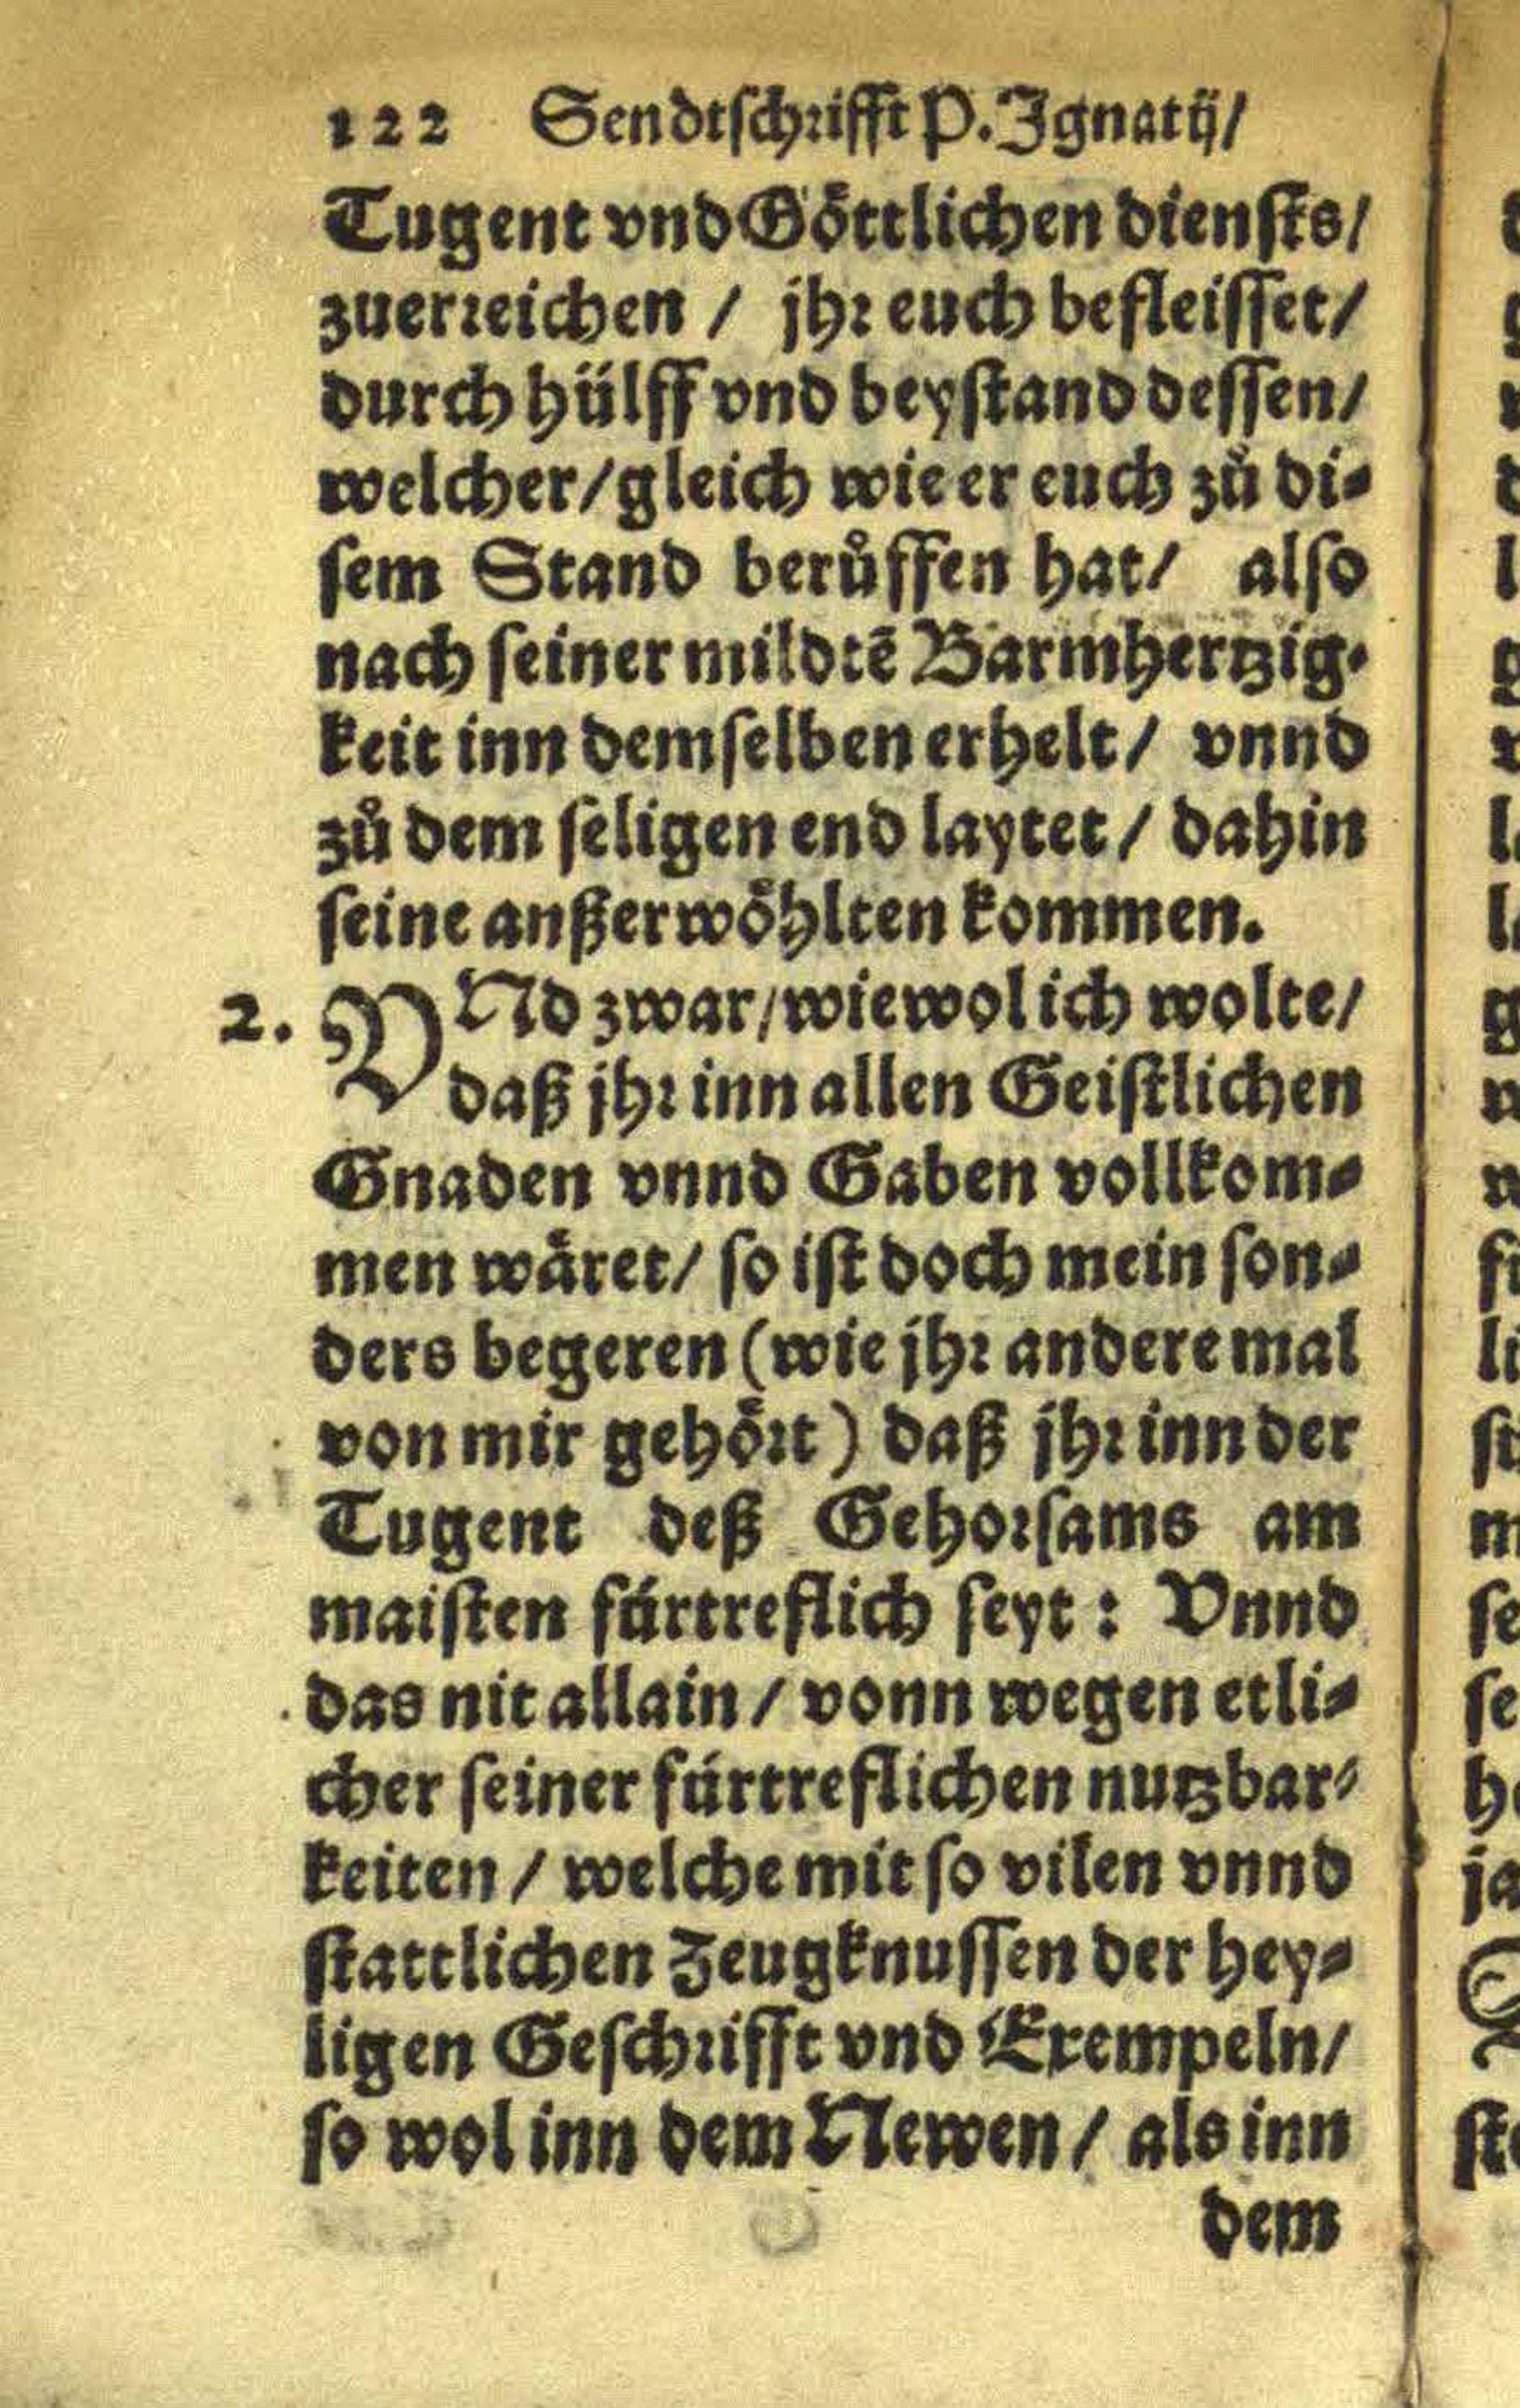 122 Sendtschrifft P. Ignatij/
Tugent vnd Göttlichen diensts/
zuerreichen / jhr euch befleisset/
durch hülff vnd beystand dessen/
welcher/gleich wie er euch zů di-
sem Stand berůffen hat/ also
nach seiner mildtē Barmhertzig-
keit inn demselben erhelt/ vnnd
zů dem seligen end laytet/ dahin
seine anßerwöhlten kommen.
2. VNd zwar/wiewol ich wolte/
daß jhr inn allen Geistlichen
Gnaden vnnd Gaben vollkom-
men wäret/ so ist doch mein son-
ders begeren (wie jhr andere mal
von mir gehört) daß jhr inn der
Tugent deß Gehorsams am
maisten fürtreflich seyt: Vnnd
das nit allain / vonn wegen etli-
cher seiner fürtreflichen nutzbar-
keiten / welche mit so vilen vnnd
stattlichen Zeugknussen der hey-
ligen Geschrifft vnd Exempeln/
so wol inn dem Newen / als inn
dem